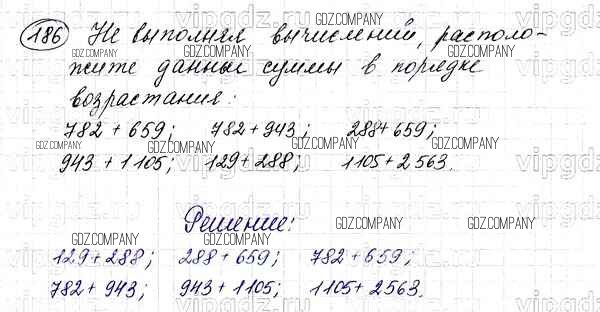 186 Не выполняя вычислений, располо-
жите данные суммы в порядке
возрастания:
782 + 659; 782 + 943; 288 + 659;
943 + 1105; 129 + 288; 1105 + 2563.
Решение:
129 + 288; 288 + 659; 782 + 659;
782 + 943; 943 + 1105; 1105 + 2563.
GDZ.COMPANY
vipgdz.ru